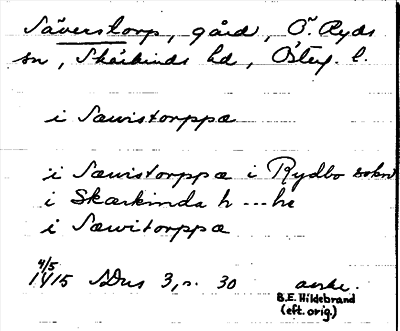 Säverstorp, gård, Ö. Ryds
sn, Skärkinds hd, Österg. l.
i Sæwistorppæ
i Sæwistorppæ i Rydbo sokn
i Skærkinda h---he
i Sæwitorppæ
4/5
1415 SDns 3, s. 30 avskr.
B.E. Hildebrand
(eft. orig.)